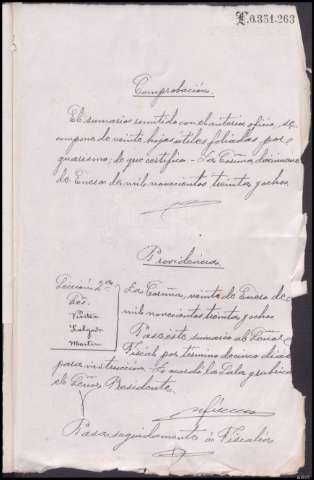 L.0.351.263
Comprobación.
El sumario remitido con el anterior oficio, se
compone de veinte hojas útiles foliadas por
guarismo, de que certifico - La Coruña, diecinueve
de Enero de mil novecientos treinta y ocho
Providencia
Sección 2ª
Srs.
Salgado
Martín
La Coruña, veinte de Enero de
mil novecientos treinta y ocho
Pase este sumario al Señor
Fiscal por término de cinco días
para instrucción. Lo mandó la Sala y rubrica
el Señor Presidente
Pasa seguidamente a Fiscalía